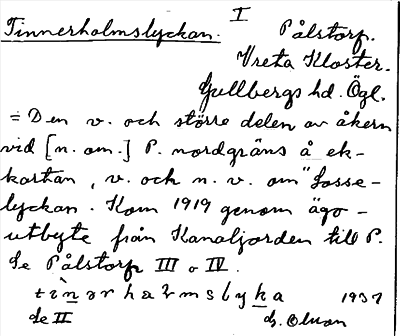 I
Tinnerholmslyckan. Pålstorp.
Vreta Kloster.
Gullbergs hd. Ögl.
= Den v. och större delen av åkern
vid [n. om.] P. nordgräns å ek-
kartan, v. och n. v. om "Losse-
lyckan. Kom 1919 genom ägo-
utbyte från Kanaljorden till P.
Se Pålstorp III o IV.
1937
Se II